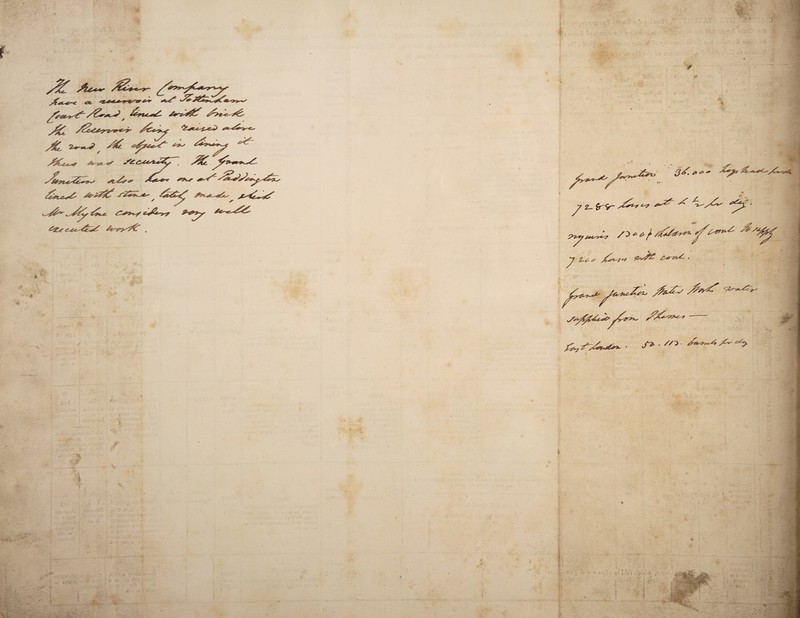 The New River Company
have a reservoir at Tottenham
Court Road, lined with brick
The Reservoir being raised above
the road, the object in lining it
thus was security. The Grand
Junction also have one at Paddington
lined with stone, lately made, which
Mr Mylne considers very well
executed work.
Grand Junction 36.000 hogsheads per
7288 houses at per day.
1300 Chaldron of coal to supply
7200 houses with coal.
Grand Junction Water Works water
supplied from Thames —
East London. 50.113. barrels per day